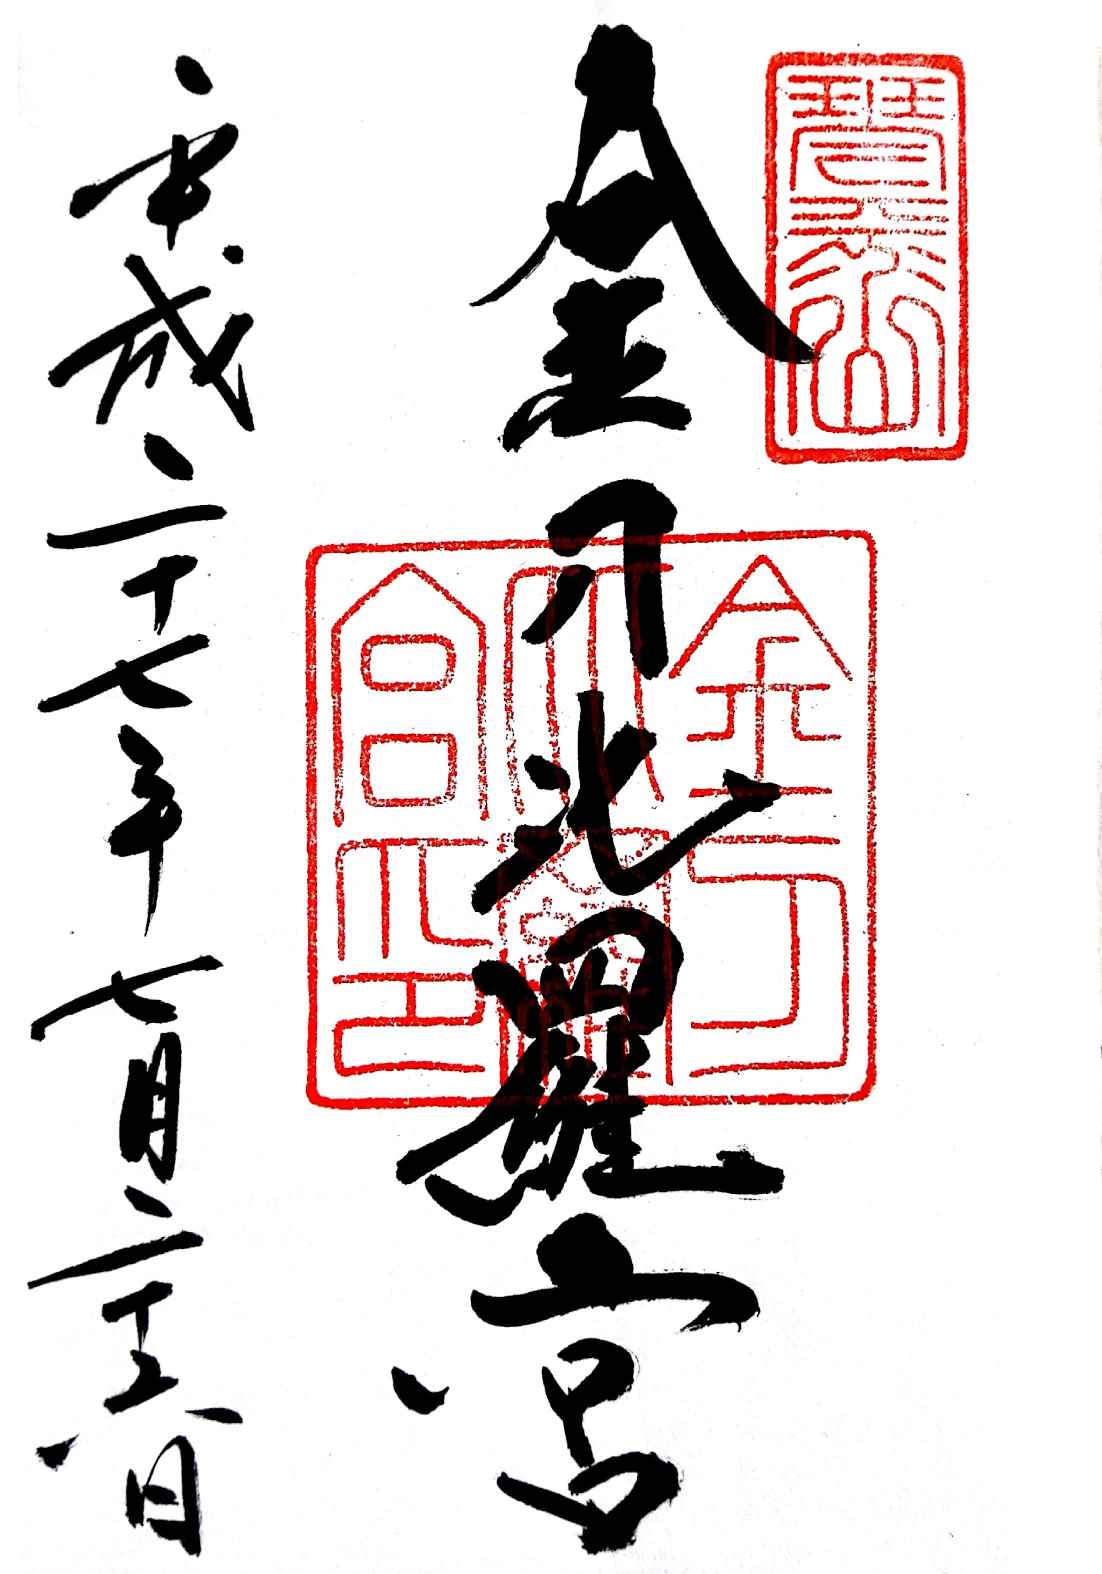 琴平山
金刀比羅宮
金刀比羅宮之印
平成二十七年七月二十六日